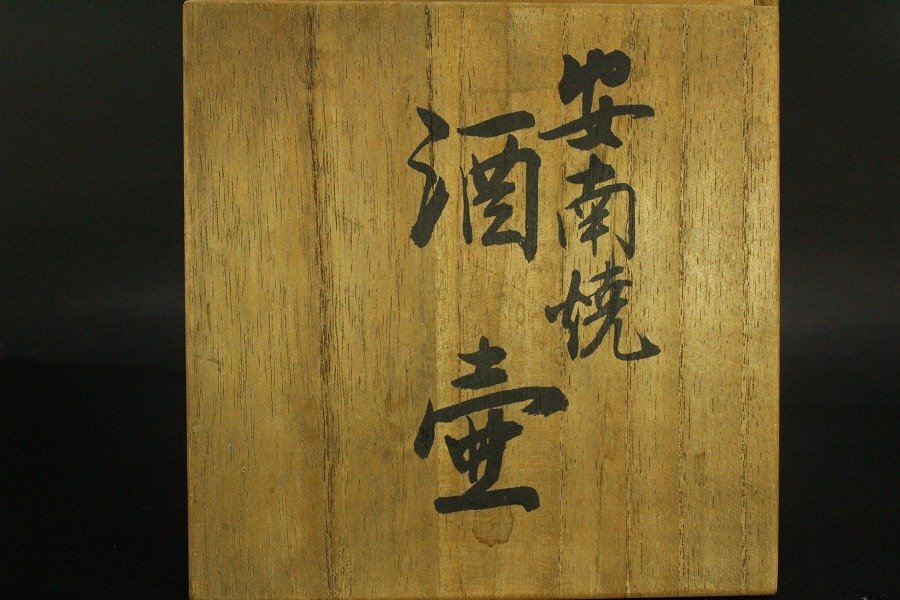 安南焼
酒壷